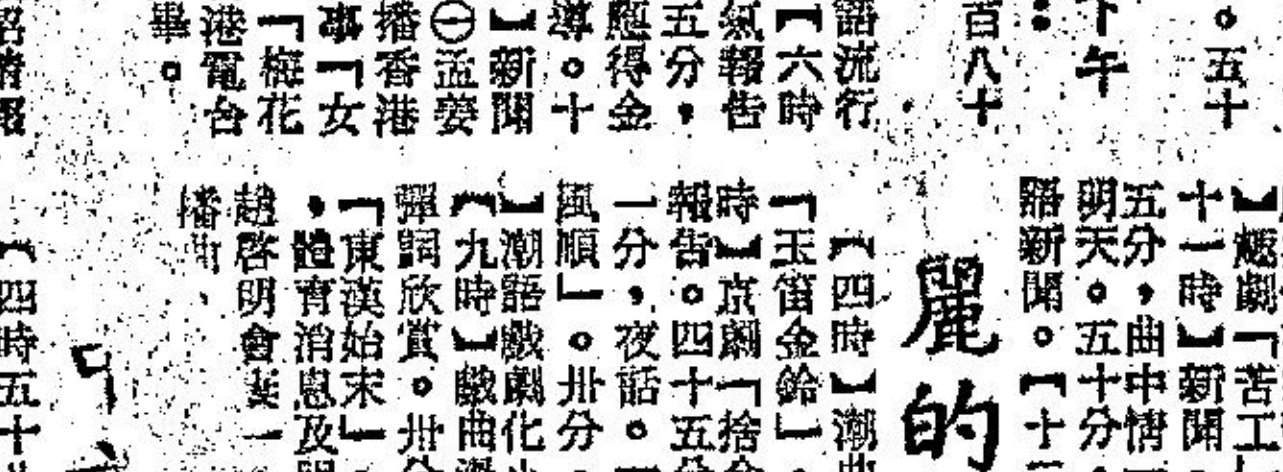 。五十
下午：
百八十
語流行
【六時
氣報告
五分，
應得金
導。十
】新聞
㊀孟姜
播香港
事「女
「梅花
港電台
畢。
】越劇「苦工」
十一時】新聞
五分，曲中情
明天。五十分
語新聞。【十
麗的
【四時】潮
「玉笛金鈴」
時】京劇「捨
報告。四十五
一分，夜話。
風順」。卅分
】潮語戲劇化
【九時】戲曲
彈詞欣賞。卅
「東漢始末」
，體育消息及
趙啓明會妻一
播
【四時五十